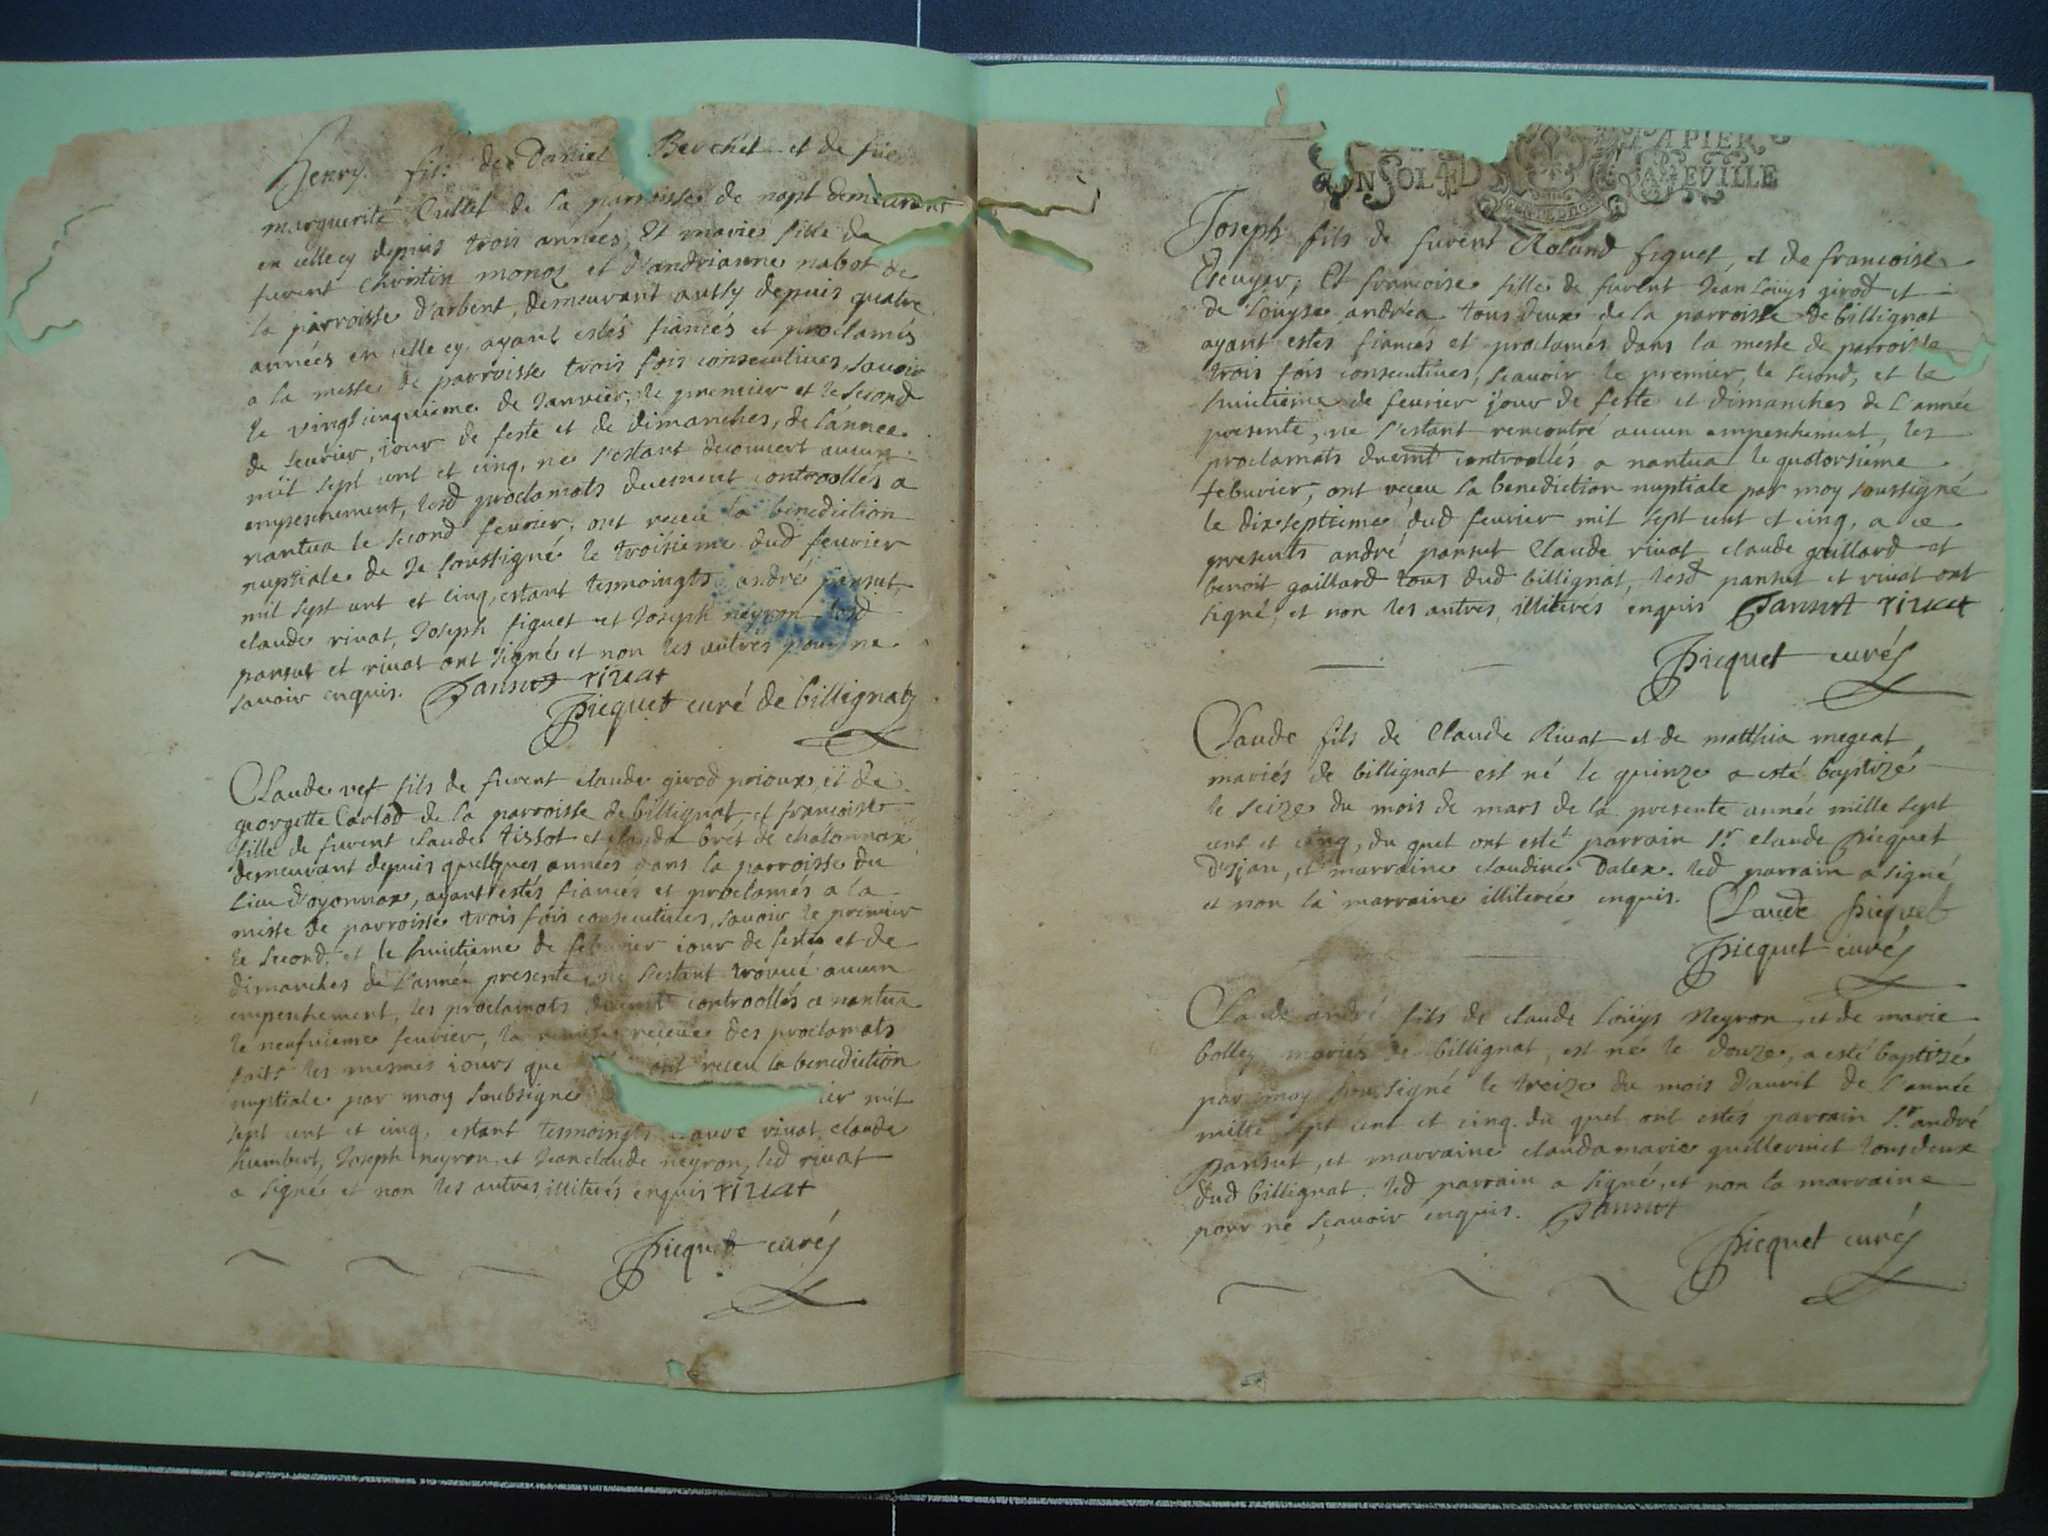 Henry fils de Daniel Berchet et de fue
marguerite Cullet de la parroisse de napt demeurant
en celle cy depuis trois années, Et marie fille de
furent Christin monoz et d'andrianne nabot de
la parroisse d'arbent, demeurant aussy depuis quatre
années en celle cy ayant estés fiancés et proclamés
a la messe de parroisse trois fois consecutives, savoir
le vingt cinquieme de Janvier, le premier et le second
de fevrier, jour de feste et de dimanches, de l'annee
mil sept cent et cinq, ne s'estant decouvert aucun
empeschement, lesd proclamats duement controollés a
nantua le second fevrier, ont receu la benediction
nuptiale de Je soussigné le troisieme dud fevrier
mil sept cent et cinq, estant tesmoingts andré pansut,
claude rivat, Joseph figuet et Joseph neyron lesd
pansut et rivat ont signé et non les autres pour ne
savoir enquis. Pansut rivat
Picquet curé de billignat
Claude vef fils de furent claude girod prioux, et de
georgette Carlod de la parroisse de billignat et francoise
fille de furent claude tissot et clauda bret de chatonnax
demeurant depuis quelques années dans la parroisse du
lieu d'oyonnax, ayant estés fiancés et proclamés a la
messe de parroisse trois fois consecutives, savoir le premier
le second, et le huictieme de febvrier jour de festes et de
dimanches de l'année presente, ne s'estant trouvé aucun
empeschement, les proclamats duemt controollés a nantua
le neufvieme fevrier, la receue des proclamats
faits les mesmes jours que ont receu la benediction
nuptiale par moy soubsigné ier mil
sept cent et cinq, estant tesmoingts claude rivat, claude
humbert, Joseph neyron, et Jean claude neyron, led rivat
a signé et non les autres illiterés enquis rivat
Picquet curé
PAPIER
CONSOLID
VILLE
Joseph fils de furent Roland figuet, et de francoise
Ecuyer, Et francoise fille de furent Jean Louys girod et
de Louyse andréa tous deux de la parroisse de billignat
ayant estés fiancés et proclamés dans la messe de parroisse
trois fois consecutives, scavoir le premier, le second, et le
huictieme de fevrier jour de feste et dimanches de l'année
presente, ne s'estant rencontré aucun empeschement, les
proclamats duemt controollés a nantua le quatorsieme
feburier, ont receu la benediction nuptiale par moy soussigné
le dixseptieme dud fevrier mil sept cent et cinq, a ce
presents andré pansut Claude rivat claude gaillard et
benoit gaillard tous dud billignat, lesd pansut et rivat ont
signé, et non les autres, illiterés enquis Pansut rivat
Picquet curé
Claude fils de Claude Rivat et de matthia megeat
mariés de billignat est né le quinze a esté baptizé
le seize du mois de mars de la presente année mille sept
cent et cinq, du quel ont esté parrain Sr claude Picquet
D'Ijan, et marraine claudine Dalex. led parrain a signé
et non la marraine illiterée enquis. Claude Picquet
Picquet curé
Claude andré fils de claude Louys Neyron et de marie
bolley mariés de billignat, est né le douze, a esté baptizé
par moy soussigné le treize du mois d'avril de l'année
mille sept cent et cinq. du quel ont estés parrain Sr andré
Pansut, et marraine claudamarie guillermet tous deux
dud billignat. led parrain a signé, et non la marraine
pour ne scavoir enquis. Pansut
Picquet curé